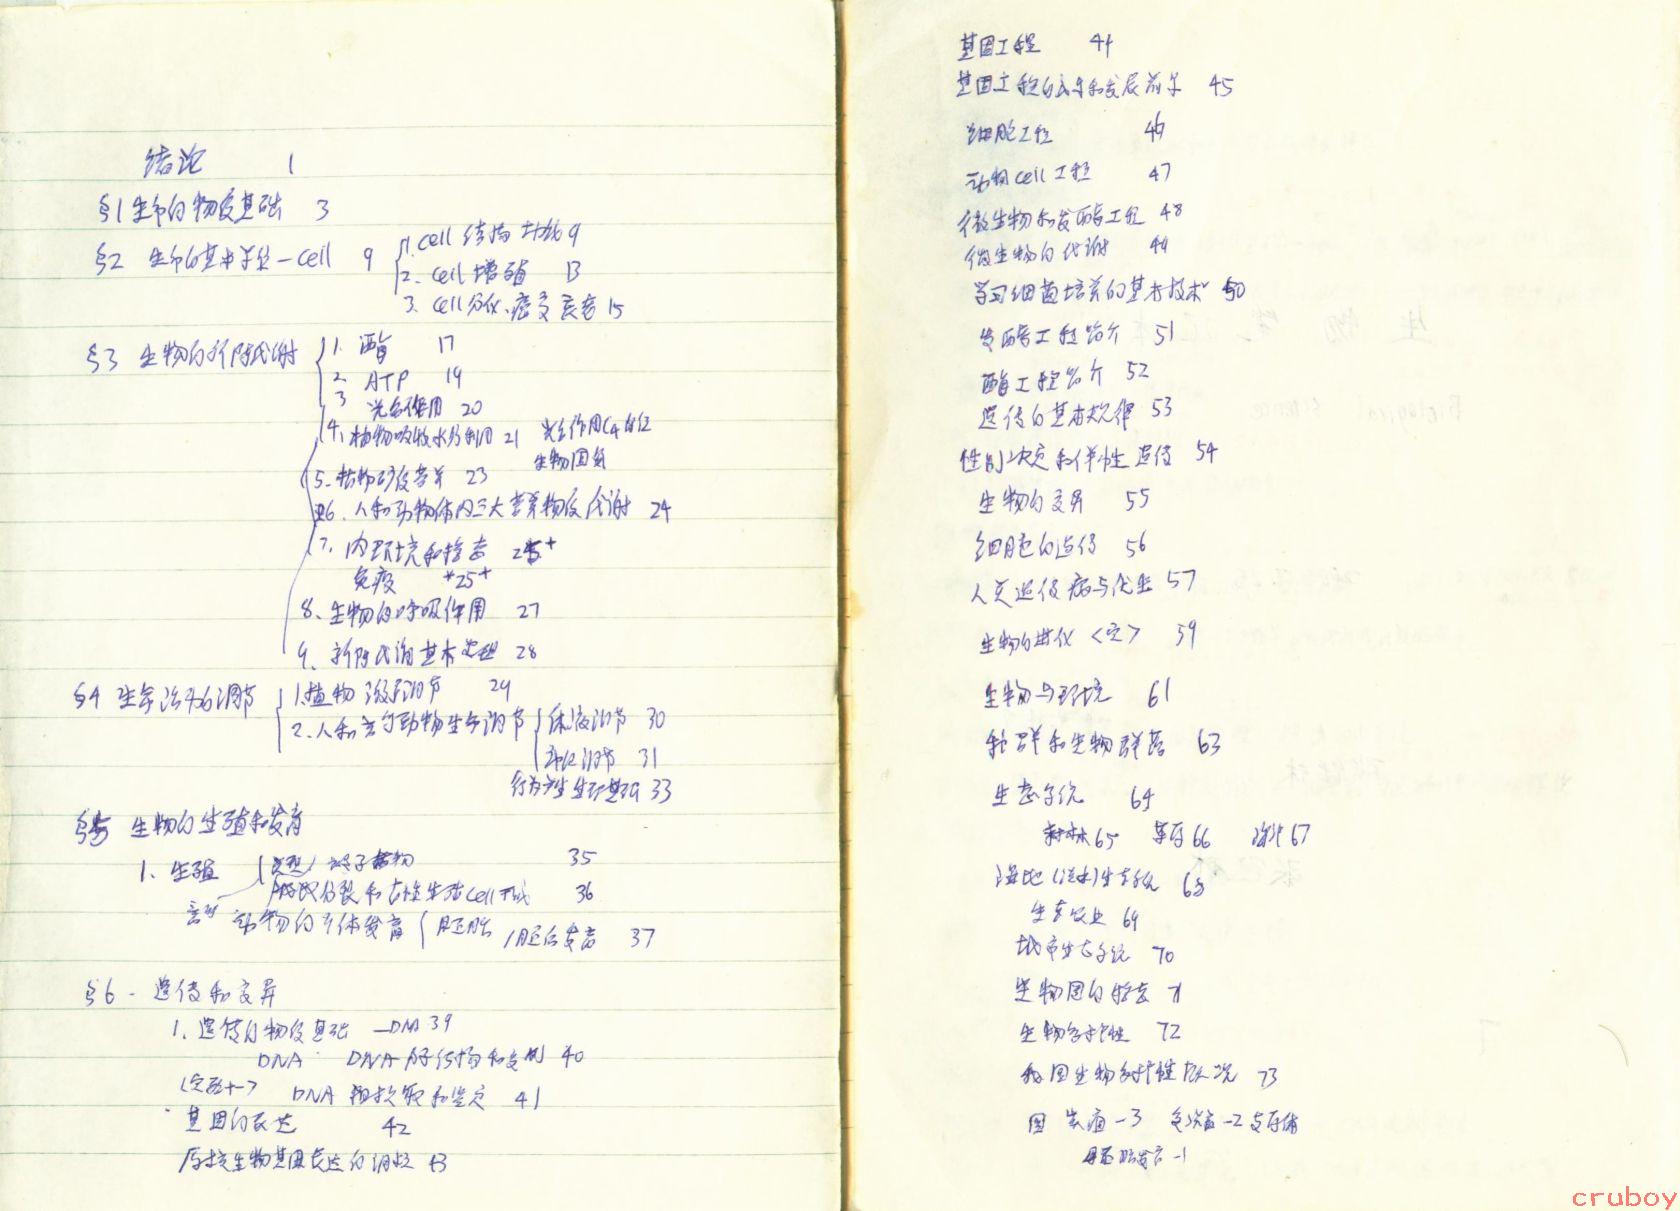 绪论 1
§1 生命的物质基础 3
§2 生命的基本单位—cell 9
1. cell 结构 功能 9
2. cell 增殖 13
3. cell 分化、癌变 衰老 15
§3 生物的新陈代谢
1. 酶 17
2. ATP 19
3 光合作用 20
4. 植物吸收水分利用 21 光合作用C4
生物固氮
5. 植物矿质营养 23
6. 人和动物体内三大营养物质代谢 24
7. 内环境和稳态 25+
免疫 *25+
8. 生物的呼吸作用 27
9. 新陈代谢基本类型 28
§4 生命活动的调节
1. 植物激素调节 29
2. 人和高等动物生命调节
体液调节 30
神经调节 31
行为产生生理基础 33
§5 生物的生殖和发育
1. 生殖 (类型) 被子植物 35
减数分裂和有性生殖cell形成 36
发育 动物的个体发育 胚胎 胚后发育 37
§6. 遗传和变异
1. 遗传的物质基础 —DNA 39
DNA DNA 分子结构和复制 40
(实验十一) DNA 粗提取和鉴定 41
基因的表达 42
原核生物基因表达的调控 43
基因工程 44
基因工程的成果和发展前景 45
细胞工程 46
动物cell工程 47
微生物和发酵工程 48
微生物的代谢 49
学习细菌培养的基本技术 50
发酵工程简介 51
酶工程简介 52
遗传的基本规律 53
性别决定和伴性遗传 54
生物的变异 55
细胞的遗传 56
人类遗传病与优生 57
生物的进化 <完> 59
生物与环境 61
种群和生物群落 63
生态系统 64
森林 65 草原 66 海洋 67
湿地(淡水)生态系统 68
生态农业 69
城市生态系统 70
生物圈的稳态 71
生物多样性 72
我国生物多样性概况 73
cruboy